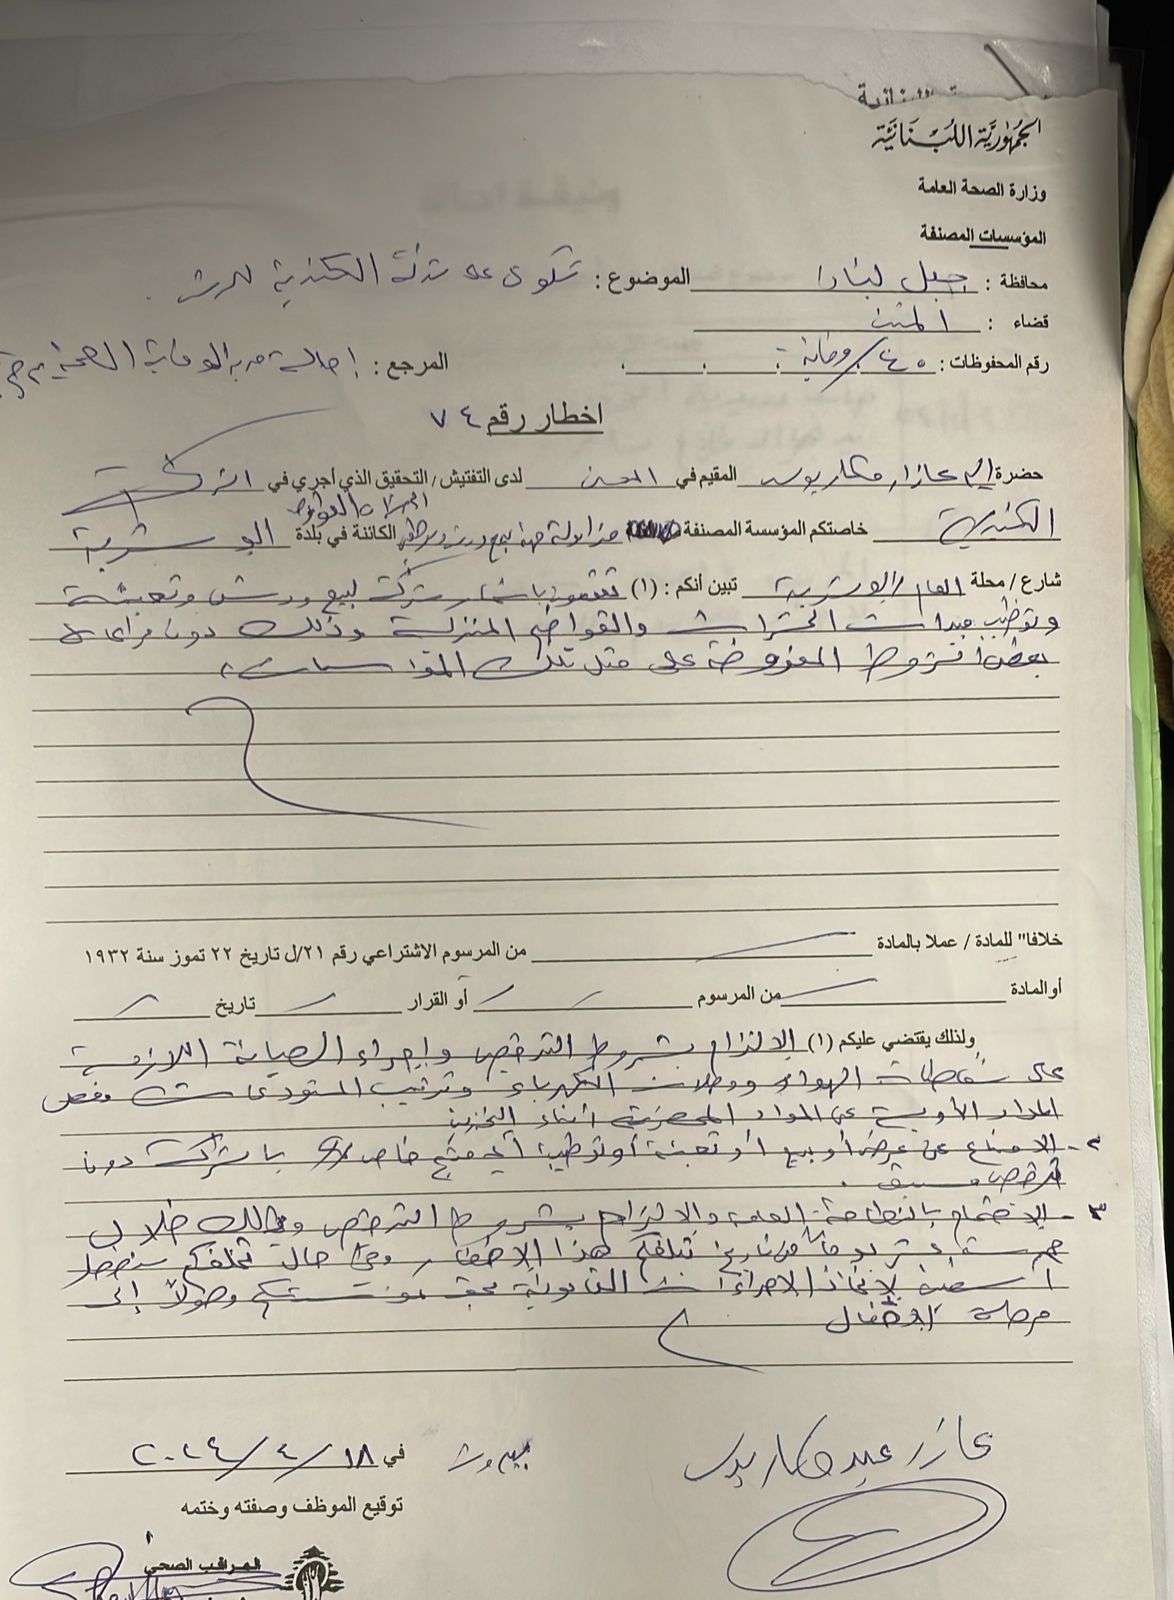 الجمهورية اللبنانية
وزارة الصحة العامة
المؤسسات المصنفة
محافظة : جبل لبنان الموضوع : شكوى على شركة الكندية للرش
قضاء : المتن
رقم المحفوظات : ٤٥ / وقاية المرجع : احالة الوقاية الصحية
اخطار رقم ٧٤
حضرة عازار مكاريوس المقيم في لدى التفتيش / التحقيق الذي أجري في الشركة
الكندية خاصتكم المؤسسة المصنفة مزاولة مهنة بيع ورش الحشرات والقوارض الكائنة في بلدة البوشرية
شارع / محلة العام البوشرية تبين أنكم : (١) شركة لبيع ورش وتعبئة
وتوظيب مبيدات الحشرات والقوارض المنزلية وذلك دون مراعاة
بعض الشروط المفروضة على مثل تلك المؤسسات
خلافا" للمادة / عملا بالمادة من المرسوم الاشتراعي رقم ٢١/ل تاريخ ٢٢ تموز سنة ١٩٣٢
أو المادة من المرسوم أو القرار تاريخ
ولذلك يقتضي عليكم (١) الالتزام بشروط الترخيص واجراء الصيانة اللازمة
على شفاطات الهواء ووصلات الكهرباء وترتيب المستودعات وفصل
المواد الأولية عن المواد المحضرة أثناء التخزين
٢ - الامتناع عن عرض أو بيع أو تعبئة أو توظيب أي منتج خاص بالشركة دون
ترخيص مسبق .
٣ - الاهتمام بالنظافة العامة والالتزام بشروط الترخيص وذلك خلال
خمسة عشر يوماً من تاريخ تبلغكم هذا الاخطار وفي حال تخلفكم سنضطر
لاتخاذ الاجراءات القانونية بحق مؤسستكم وصولاً إلى
مرحلة الاقفال
عازار عبد مكاريوس
بيروت في ١٨/٤/٢٠٢٤
توقيع الموظف وصفته وختمه
المراقب الصحي